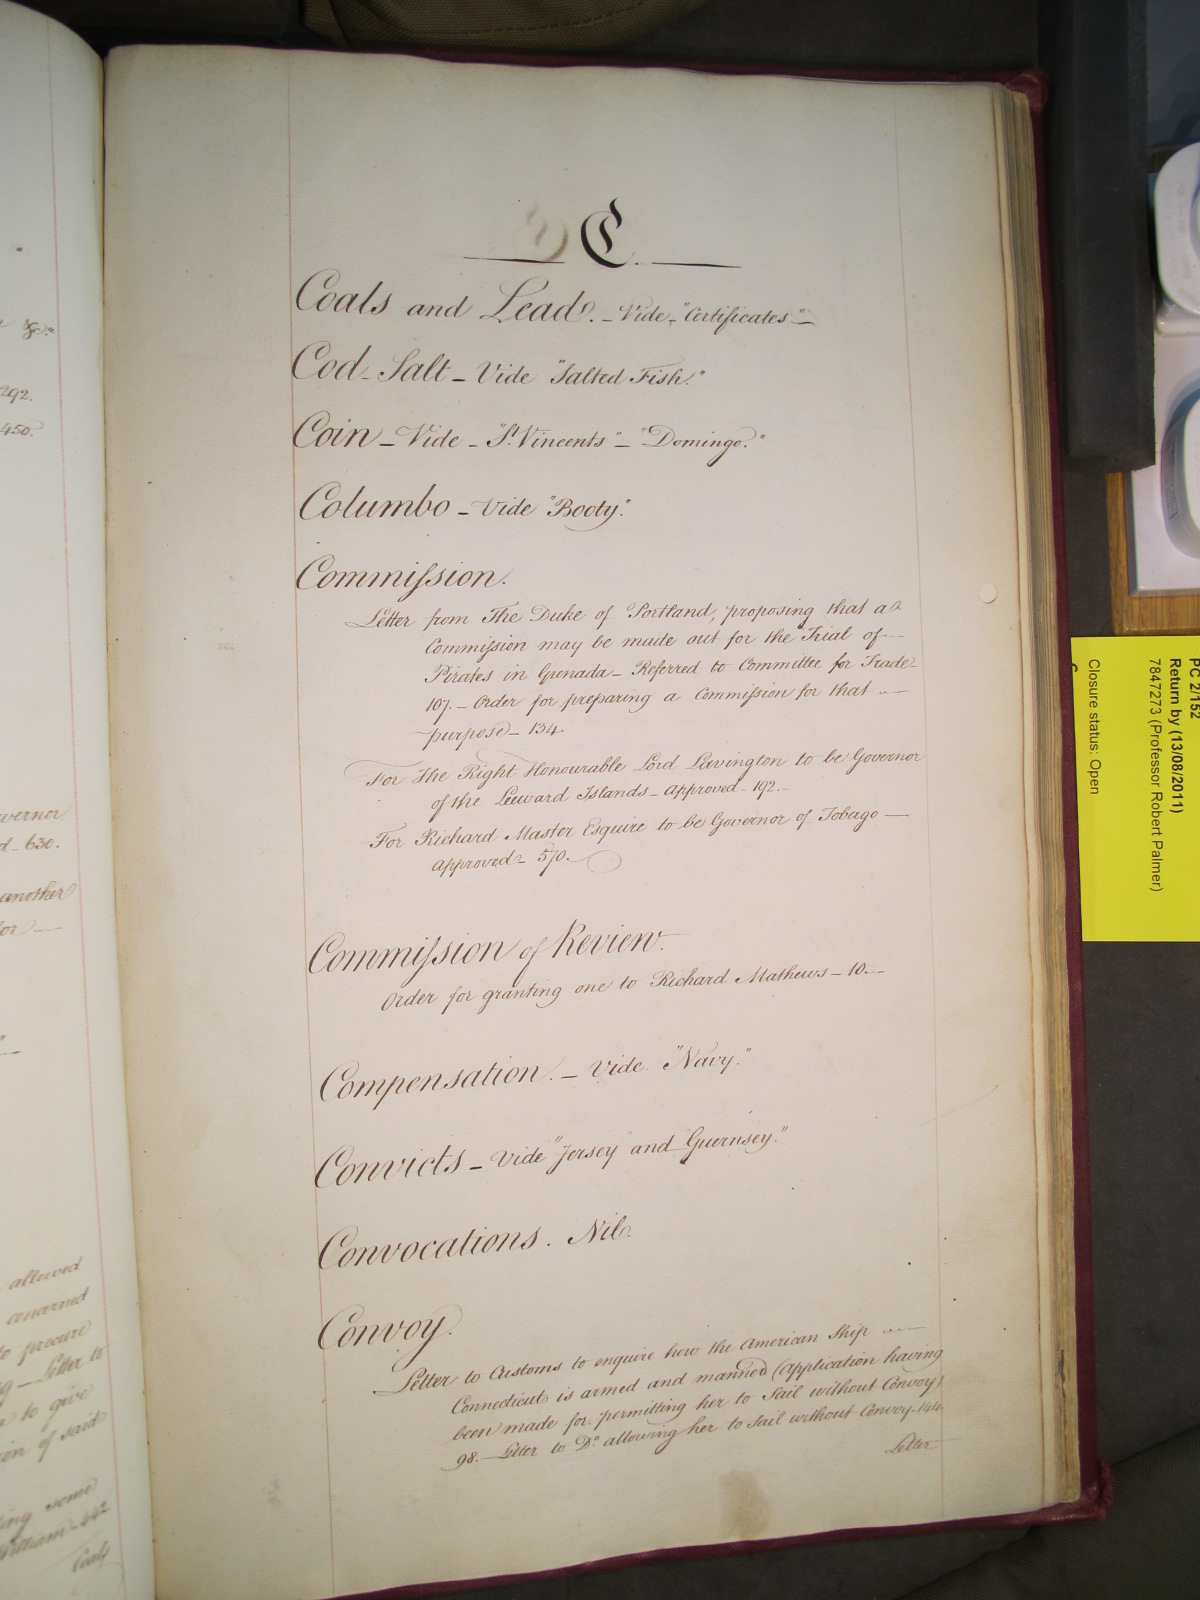 & &c.
292.
450.
vernor
d - 630.
another
allowed
concerned
to procure
Letter to
to give
ion of said
ing some
William - 442
Coals
C.
Coals and Lead. - Vide - "Certificates" -
Cod - Salt - Vide "Salted Fish."
Coin - Vide - "St. Vincents" - "Domingo."
Columbo - Vide "Booty".
Commiſsion.
Letter from The Duke of Portland, proposing that a
Commiſsion may be made out for the Trial of
Pirates in Grenada - Referred to Committee for Trade
107. - Order for preparing a Commiſsion for that
purpose - 134.
For The Right Honourable Lord Lavington to be Governor
of the Leeward Islands - Approved - 192. -
For Richard Master Esquire to be Governor of Tobago -
Approved - 570.
Commiſsion of Review.
Order for granting one to Richard Mathews - 10. -
Compensation. - Vide "Navy."
Convicts - Vide "Jersey" and "Guernsey."
Convocations. Nil.
Convoy.
Letter to Customs to enquire how the American Ship
Connecticut is armed and manned (Application having
been made for permitting her to Sail without Convoy)
98. - Letter to Do. allowing her to Sail without Convoy - 144.
Letter
PC 2/152
Return by (13/08/2011)
7847273 (Professor Robert Palmer)
Closure status: Open